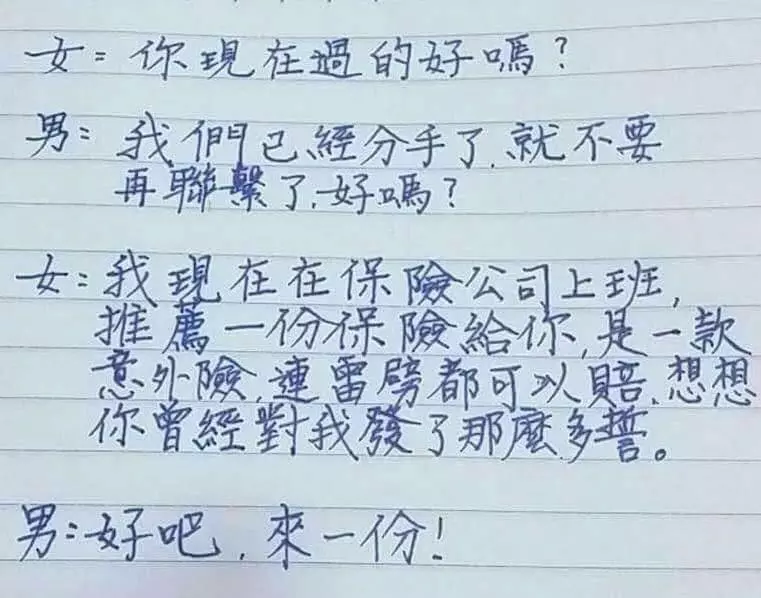 女：你現在過的好嗎？
男：我們已經分手了，就不要
再聯繫了，好嗎？
女：我現在在保險公司上班，
推薦一份保險給你，是一款
意外險，連雷劈都可以賠，想想
你曾經對我發了那麼多誓。
男：好吧，來一份！